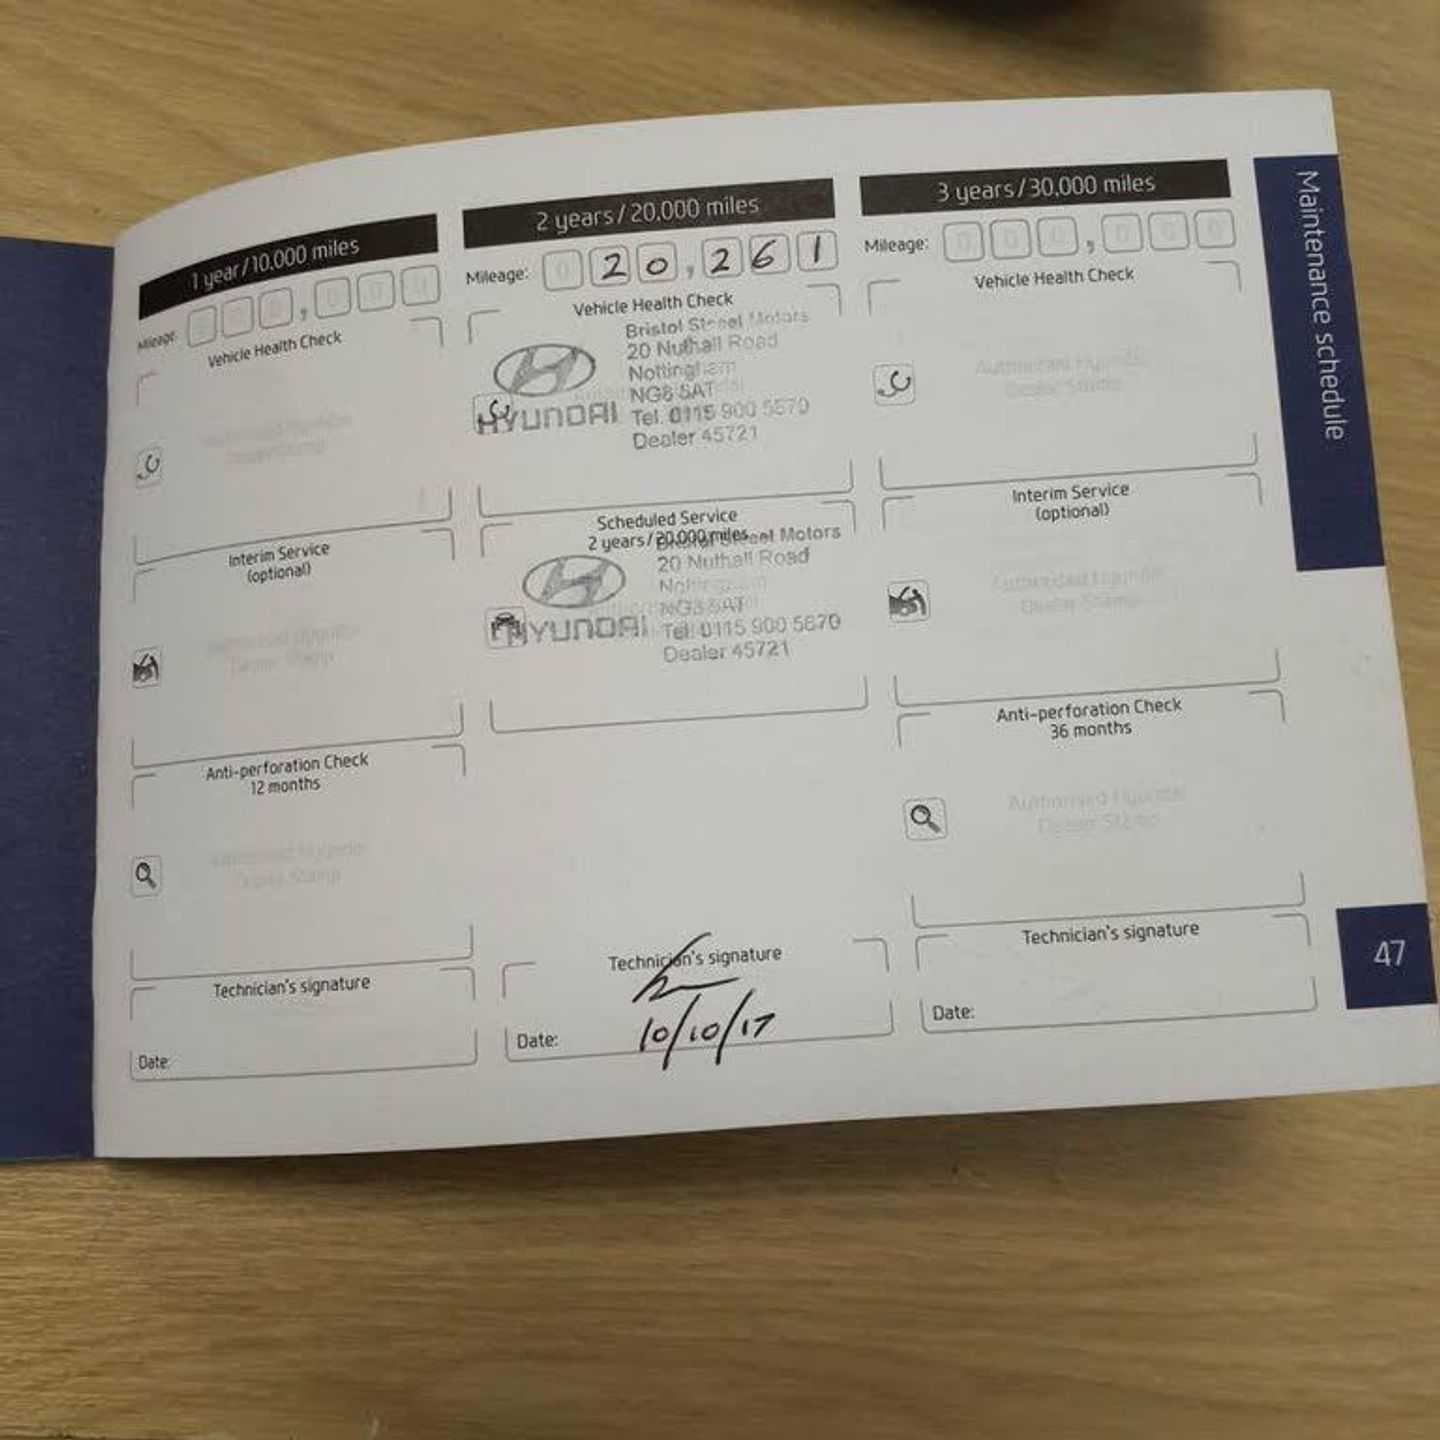 1 year/10,000 miles
Mileage: 000,000
Vehicle Health Check
Authorised Hyundai
Dealer Stamp
Interim Service
(optional)
Authorised Hyundai
Dealer Stamp
Anti-perforation Check
12 months
Authorised Hyundai
Dealer Stamp
Technician's signature
Date:
2 years/20,000 miles
Mileage: 020,261
Vehicle Health Check
HYUNDAI
Bristol Street Motors
20 Nuthall Road
Nottingham
NG8 5AT
Tel. 0115 900 5570
Dealer 45721
Scheduled Service
2 years/20,000 miles
HYUNDAI
Bristol Street Motors
20 Nuthall Road
Nottingham
NG8 5AT
Tel: 0115 900 5670
Dealer 45721
Technician's signature
Date: 10/10/17
3 years/30,000 miles
Mileage: 000,000
Vehicle Health Check
Authorised Hyundai
Dealer Stamp
Interim Service
(optional)
Authorised Hyundai
Dealer Stamp
Anti-perforation Check
36 months
Authorised Hyundai
Dealer Stamp
Technician's signature
Date:
Maintenance schedule
47